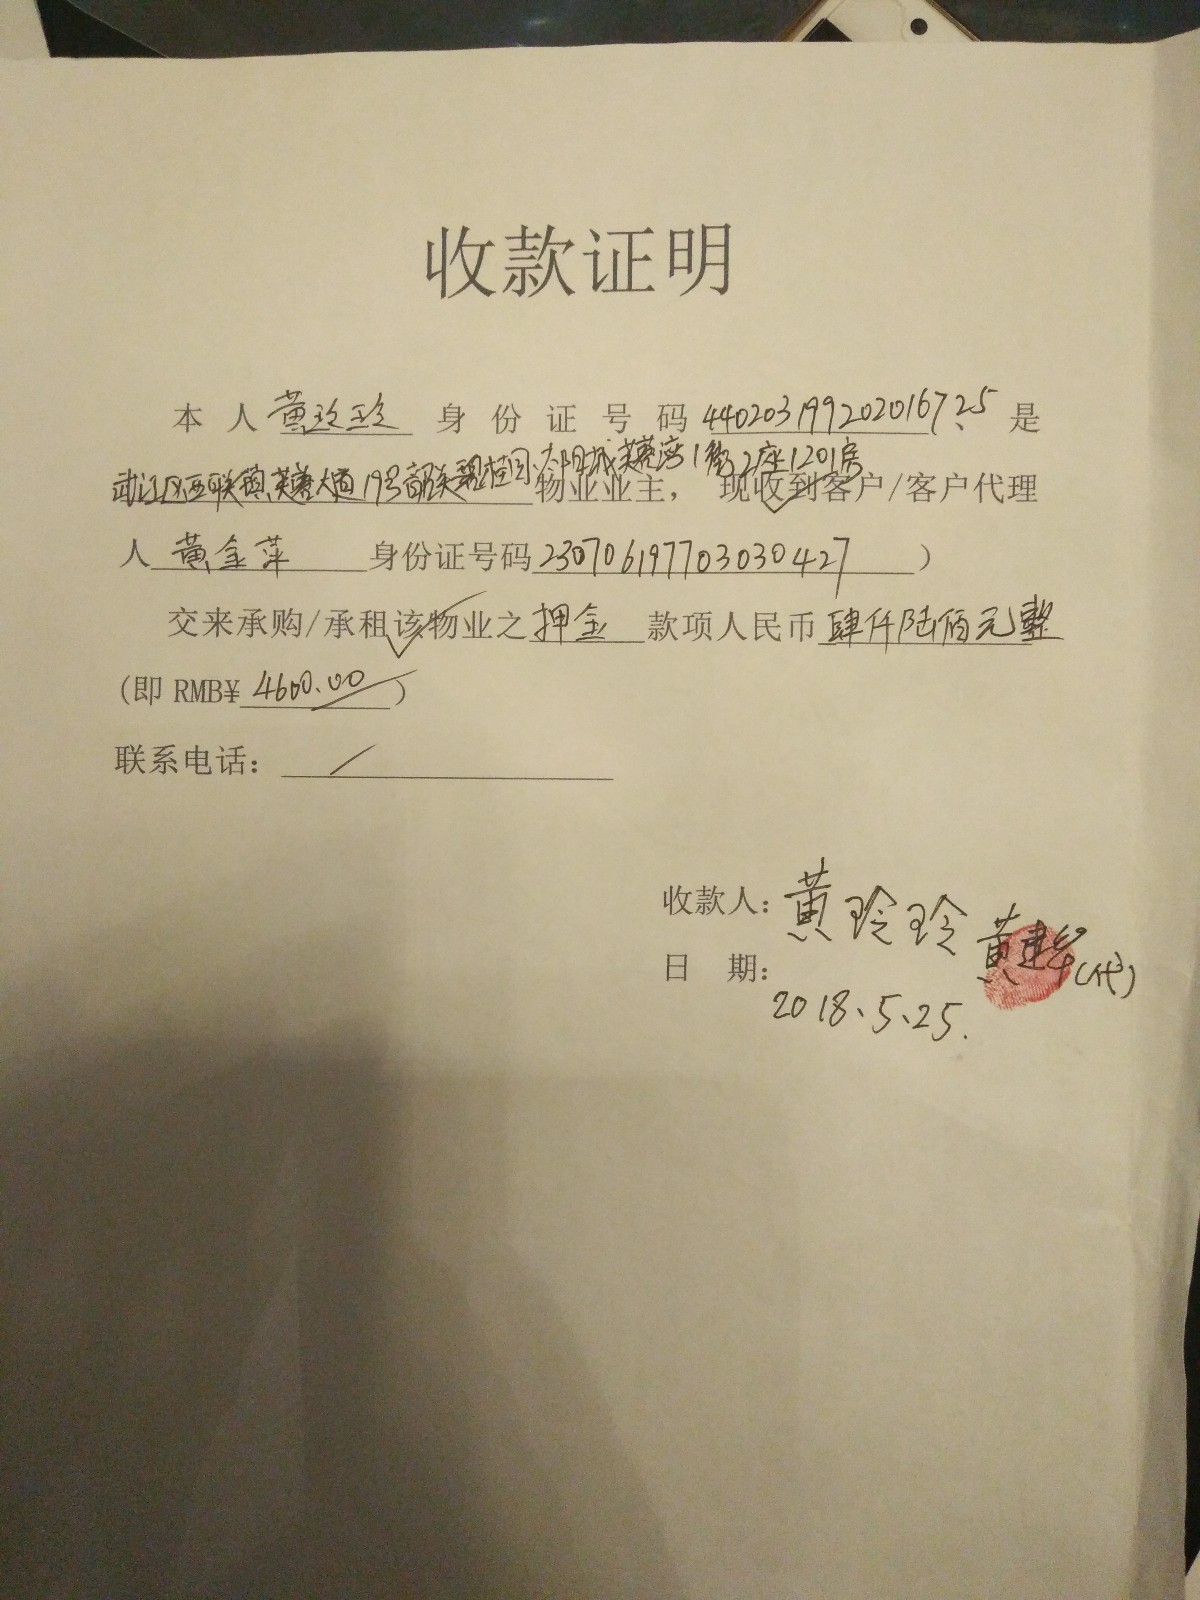 收款证明
本人黄玲玲 身份证号码440203199202016725是
武江区西联镇芙蓉大道19号韶关碧桂园太阳城芙蓉湾1街2座1201房
物业业主，现收到客户/客户代理
人 黄金萍 身份证号码230706197703030427）
交来承购/承租该物业之押金 款项人民币肆仟陆佰元整
(即RMB¥4600.00)
联系电话： /
收款人：黄玲玲 黄建华(代)
日 期：
2018、5、25.